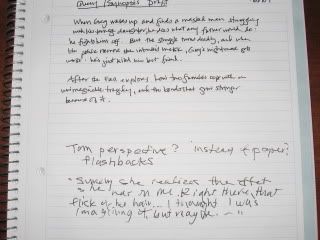 Query / Synopsis Draft
When Greg wakes up and finds a masked man struggling
with his teenage daughter, he does what any father would do:
he fights him off. But the struggle turns deadly, and when
the police remove the intruder's mask, Greg's nightmare gets
worse: he's just killed his best friend.
After the Fall explores how two families cope with an
unimaginable tragedy, and the bonds that grow stronger
because of it.
Tom perspective? instead of paper?
flashbacks
"Surely she realizes the effect
she has on me. Right there, that
flick of her hair... I thought I was
imagining it but maybe. — "